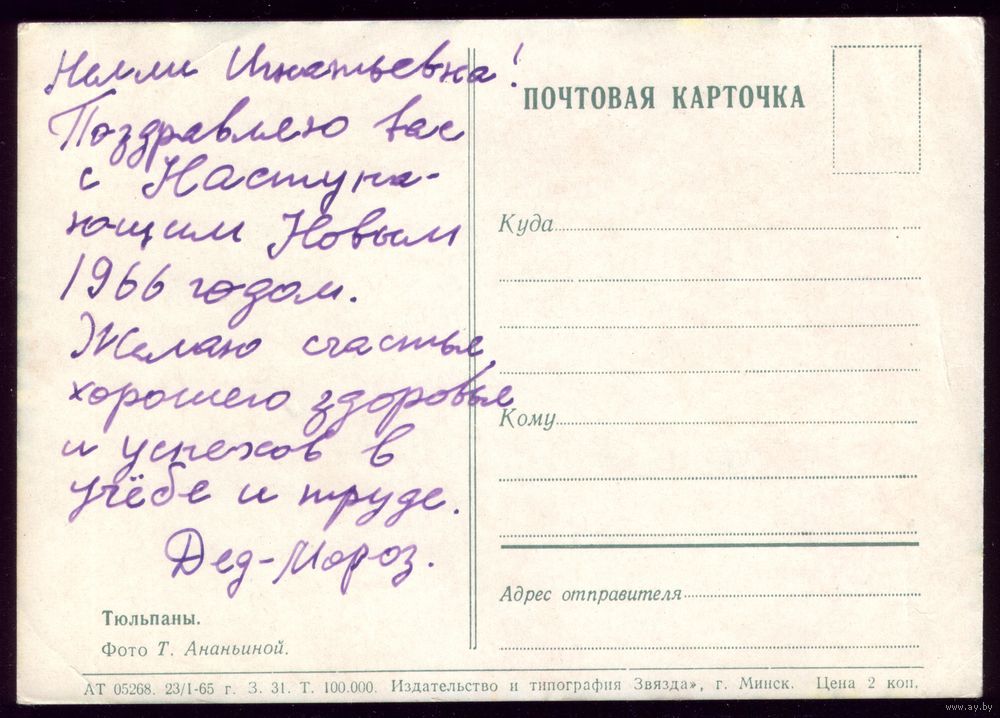 Нелли Игнатьевна!
Поздравляю вас
с Наступа-
ющим Новым
1966 годом.
Желаю счастья,
хорошего здоровья
и успехов в
учёбе и труде.
Дед-Мороз.
Тюльпаны.
Фото Т. Ананьиной.
ПОЧТОВАЯ КАРТОЧКА
Куда
Кому
Адрес отправителя
АТ 05268. 23/1-65 г. З. 31. Т. 100.000. Издательство и типография Звязда», г. Минск. Цена 2 коп.
www.ay.by